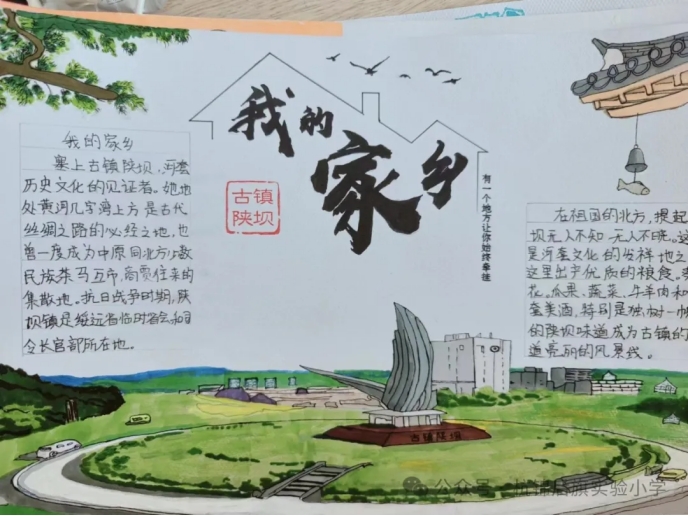 我的家乡
古镇
陕坝
有一个地方让你始终牵挂
我的家乡
塞上古镇陕坝，河套
历史文化的见证者。她地
处黄河几字湾上方是古代
丝绸之路的必经之地，也
曾一度成为中原同北方少数
民族茶马互市，商贾往来的
集散地。抗日战争时期，陕
坝镇是绥远省临时省会和司
令长官部所在地。
在祖国的北方，提起
坝无人不知无人不晓。这
是河套文化的发祥地之
这里出产优质的粮食。
花。瓜果、蔬菜、牛羊肉和
套美酒，特别是独树一帜
的陕坝味道成为古镇的
道亮丽的风景线。
古镇陕坝
公众号
旗实验小学